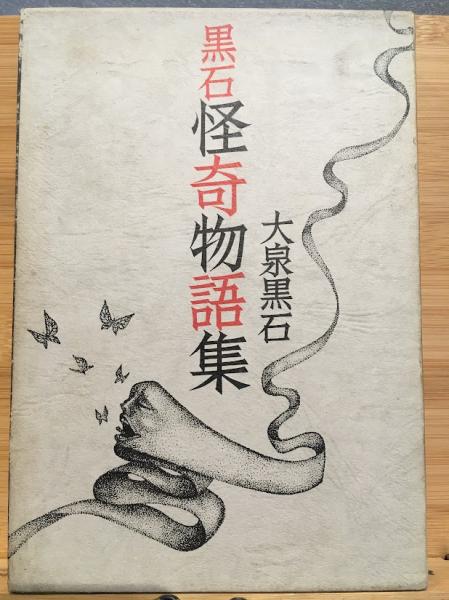 黒石怪奇物語集
大泉黒石